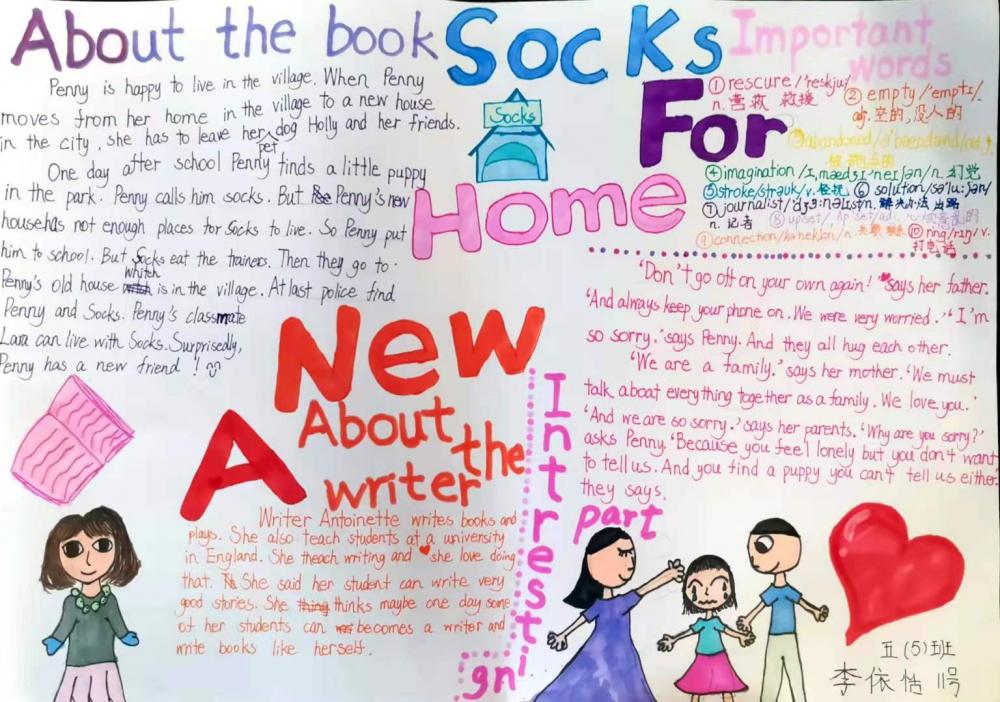 About the book
Penny is happy to live in the village. When Penny
moves from her home in the village to a new house
in the city, she has to leave her pet dog Holly and her friends.
One day after school Penny finds a little puppy
in the park. Penny calls him socks. But Penny's new
house has not enough places for Socks to live. So Penny put
him to school. But Socks eat the trainers. Then they go to
Penny's old house whitch is in the village. At last police find
Penny and Socks. Penny's classmate
Lara can live with Socks. Surprisedly,
Penny has a new friend!
Socks
For
A New
Home
Socks
Important
words
① rescure/'reskju/
n. 营救 救援
② empty/'emptɪ/
adj. 空的,没人的
③ abandoned
④ imagination/ɪ,mædʒɪ'neɪʃən/n. 幻觉
⑤ stroke/strəuk/v. 轻抚 ⑥ solution/sə'lu:ʃən/
⑦ journalist/'dʒɜ:nəlɪst/n. 解决办法 出路
n. 记者 ⑧ upset
⑨ connection ⑩ ring/rɪŋ/v.
打电话
'Don't go off on your own again!' says her father.
'And always keep your phone on. We were very worried.' 'I'm
so sorry.' says Penny. And they all hug each other.
'We are a family.' says her mother. 'We must
talk aboat everything together as a family. We love you.'
'And we are so sorry.' says her parents. 'Why are you sorry?'
asks Penny. 'Because you feel lonely but you don't want
to tell us. And you find a puppy you can't tell us either.
they says.
Intresting
part
About
the
writer
Writer Antoinette writes books and
plays. She also teach students at a university
in England. She theach writing and she love doing
that. She said her student can write very
good stories. She thinks maybe one day some
of her students can becomes a writer and
write books like herself.
五(5)班
李依恬 11号